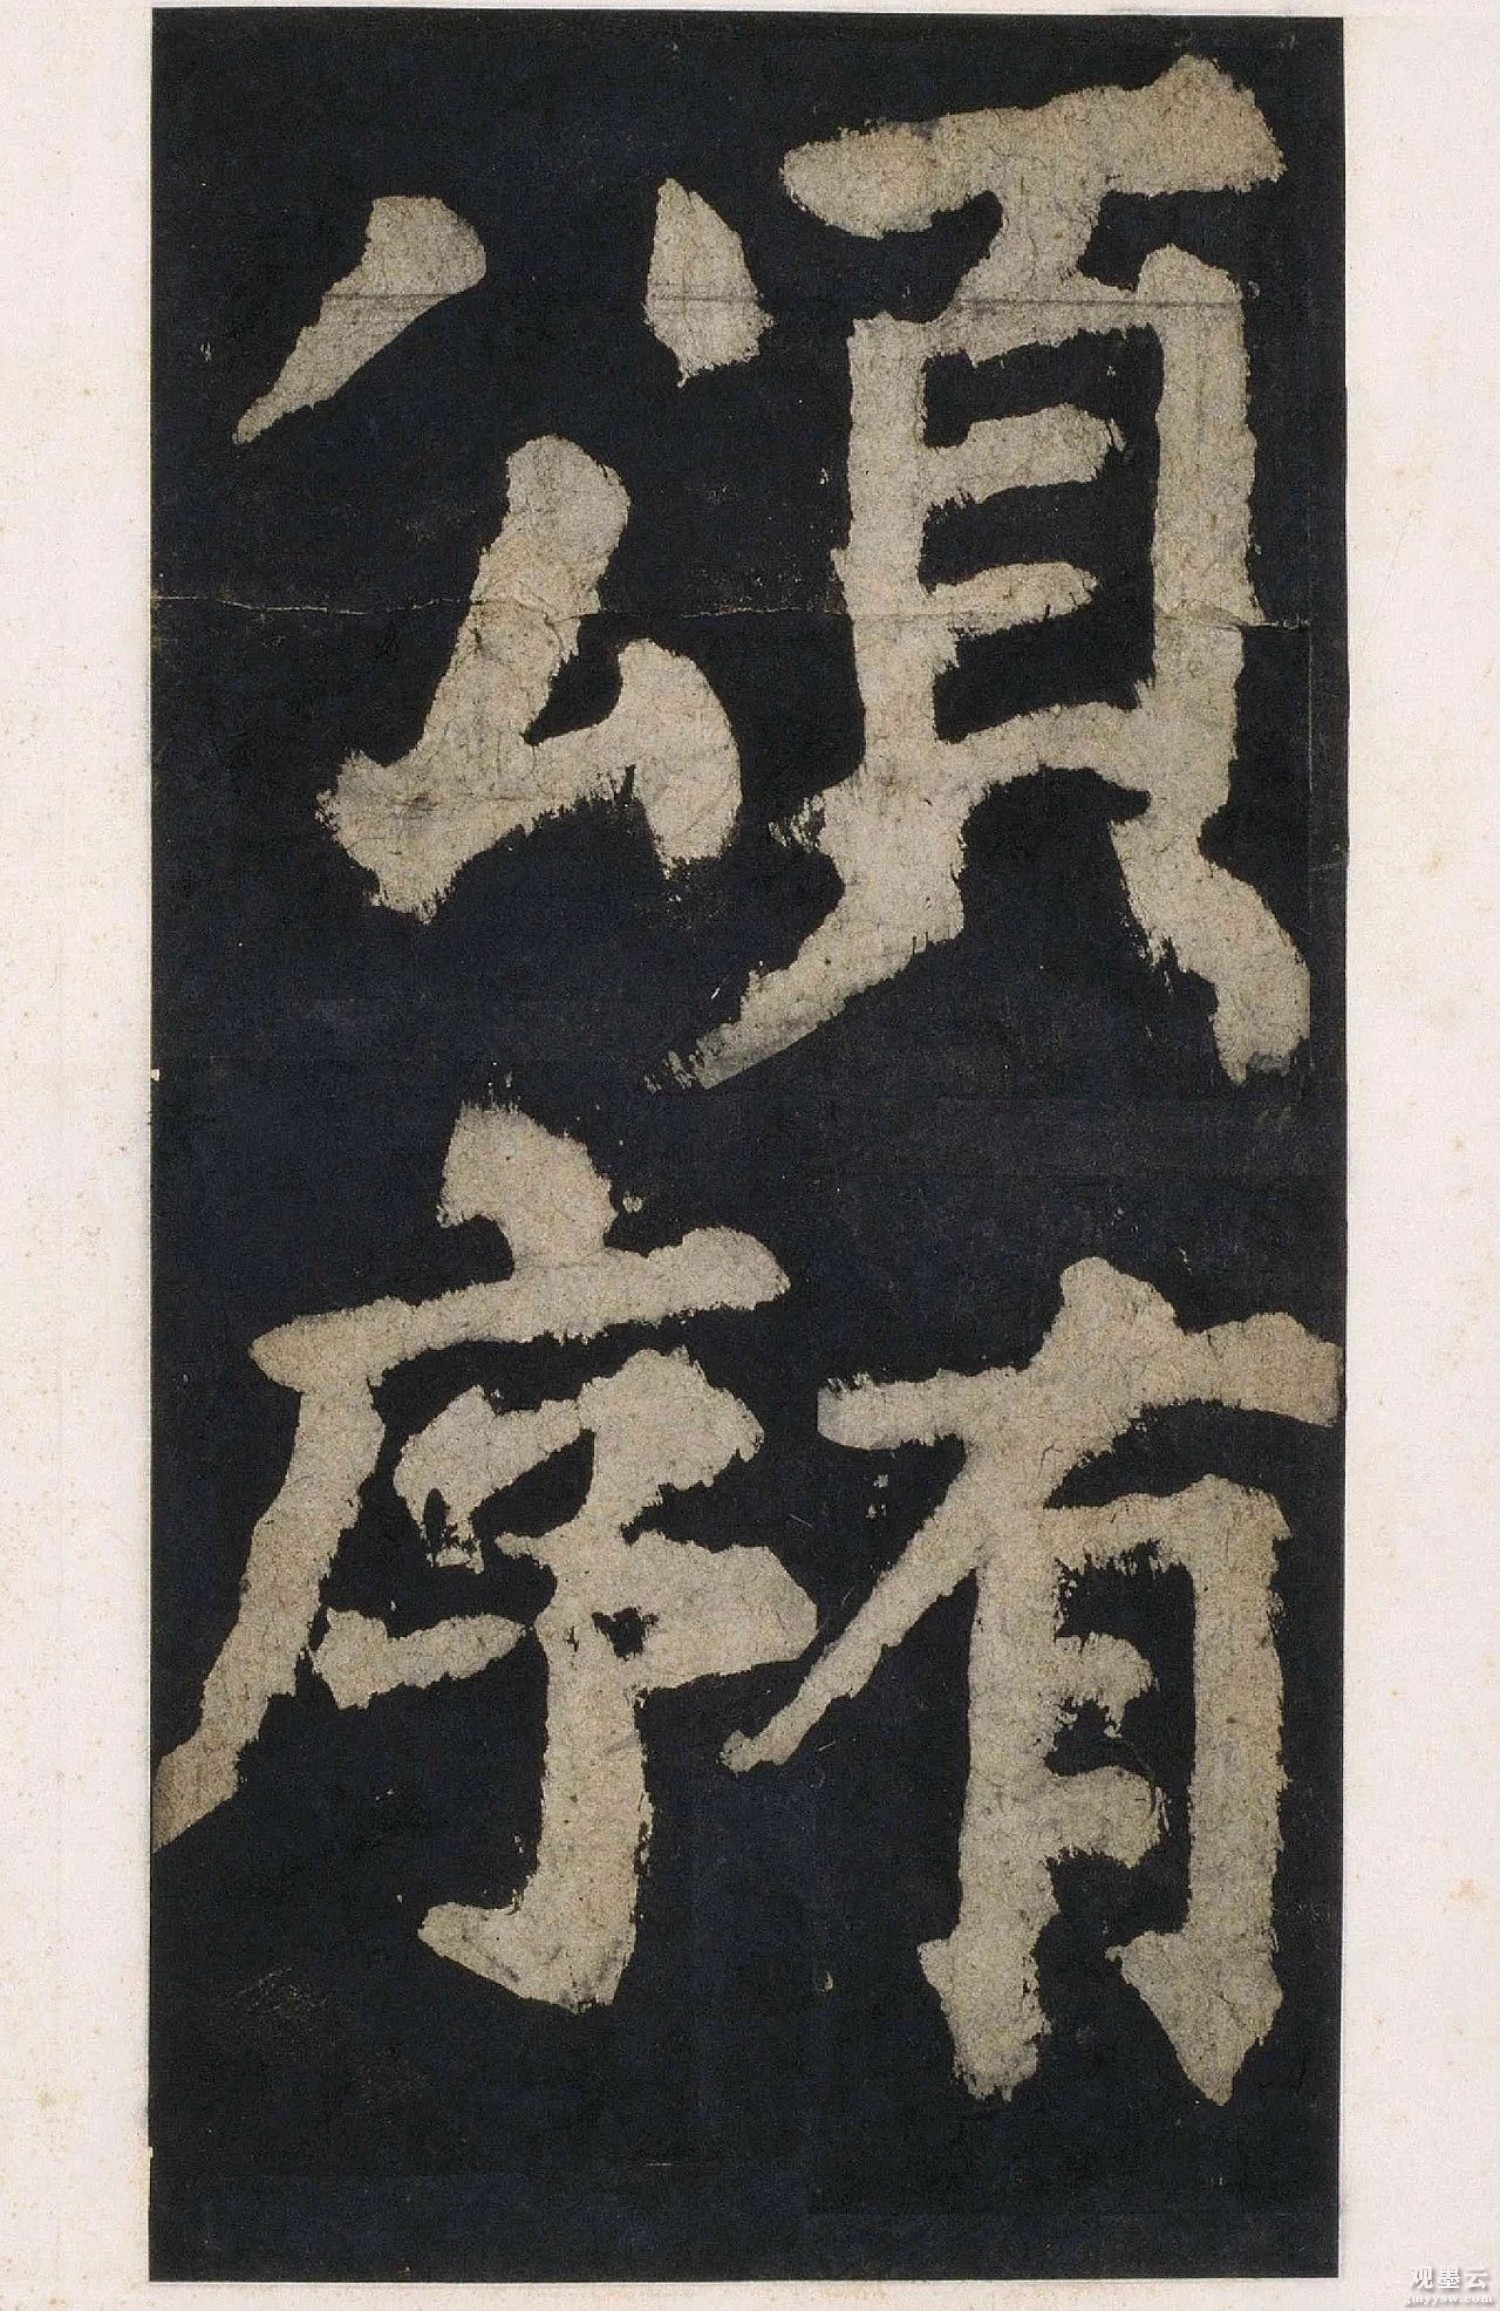 頌
有序
观墨云
gmyysw.com